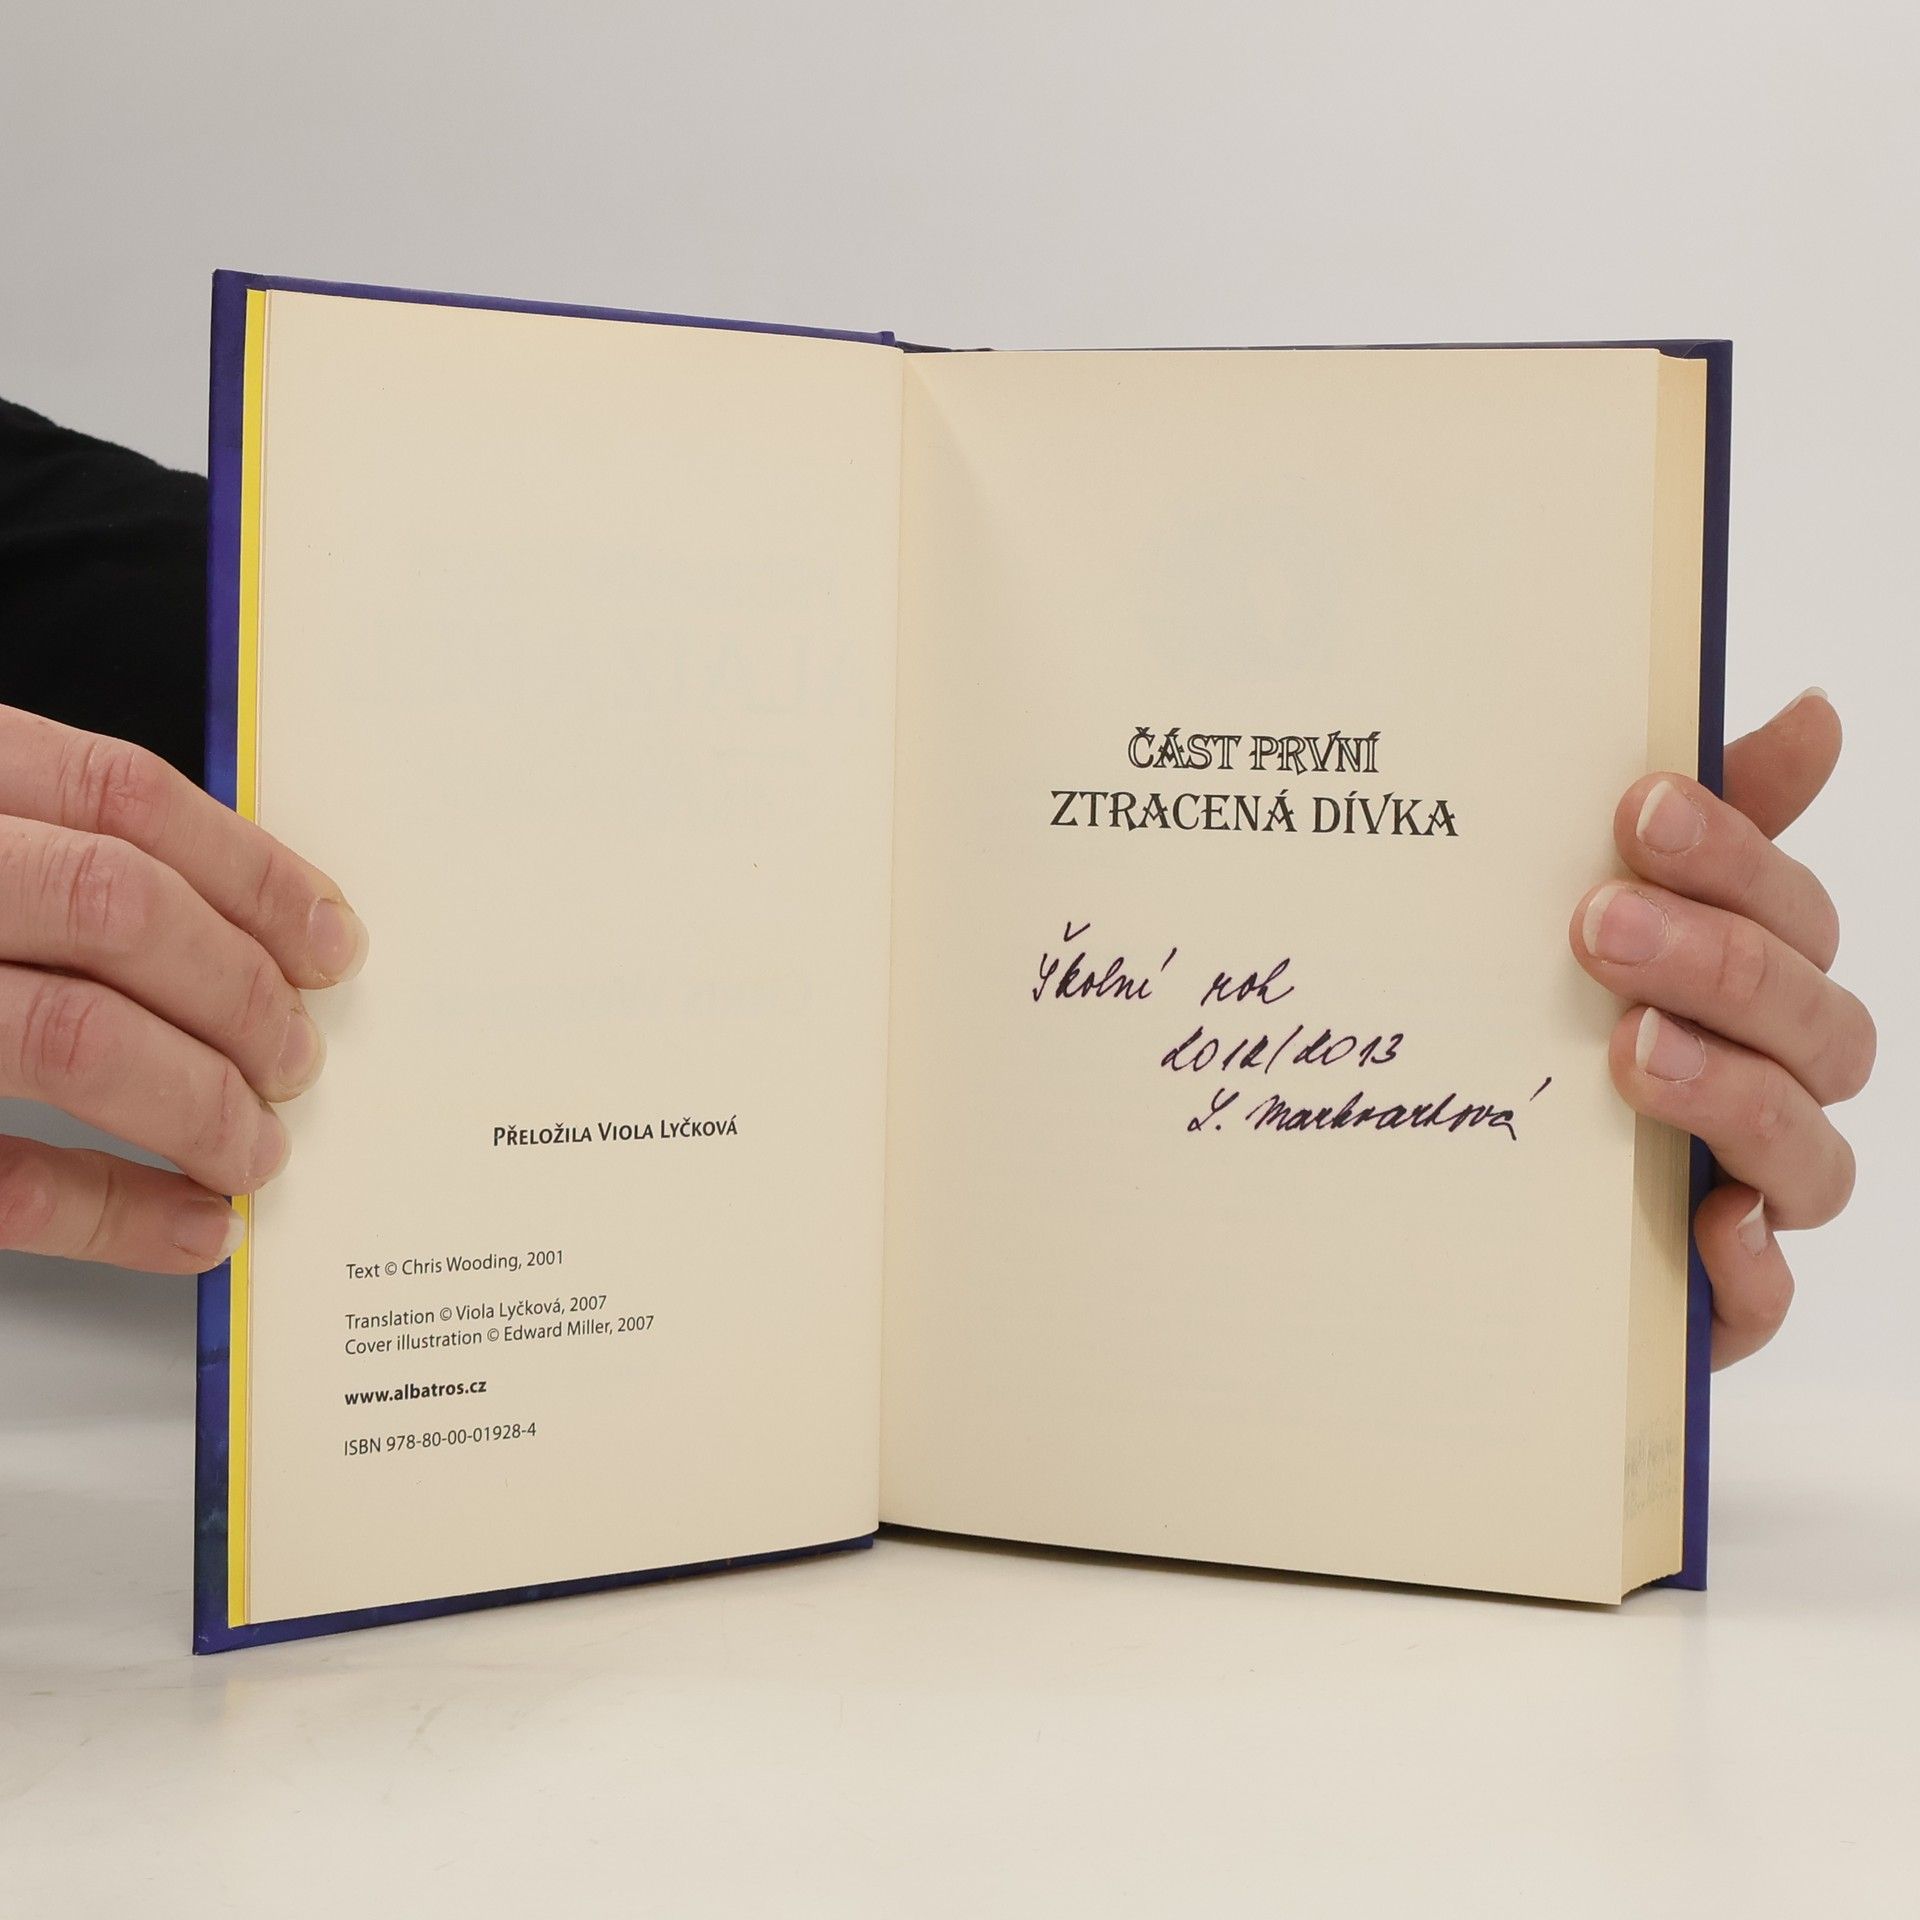 PŘELOŽILA VIOLA LYČKOVÁ
Text © Chris Wooding, 2001
Translation © Viola Lyčková, 2007
Cover illustration © Edward Miller, 2007
www.albatros.cz
ISBN 978-80-00-01928-4
ČÁST PRVNÍ
ZTRACENÁ DÍVKA
Školní rok
2012/2013
L. Markvartová